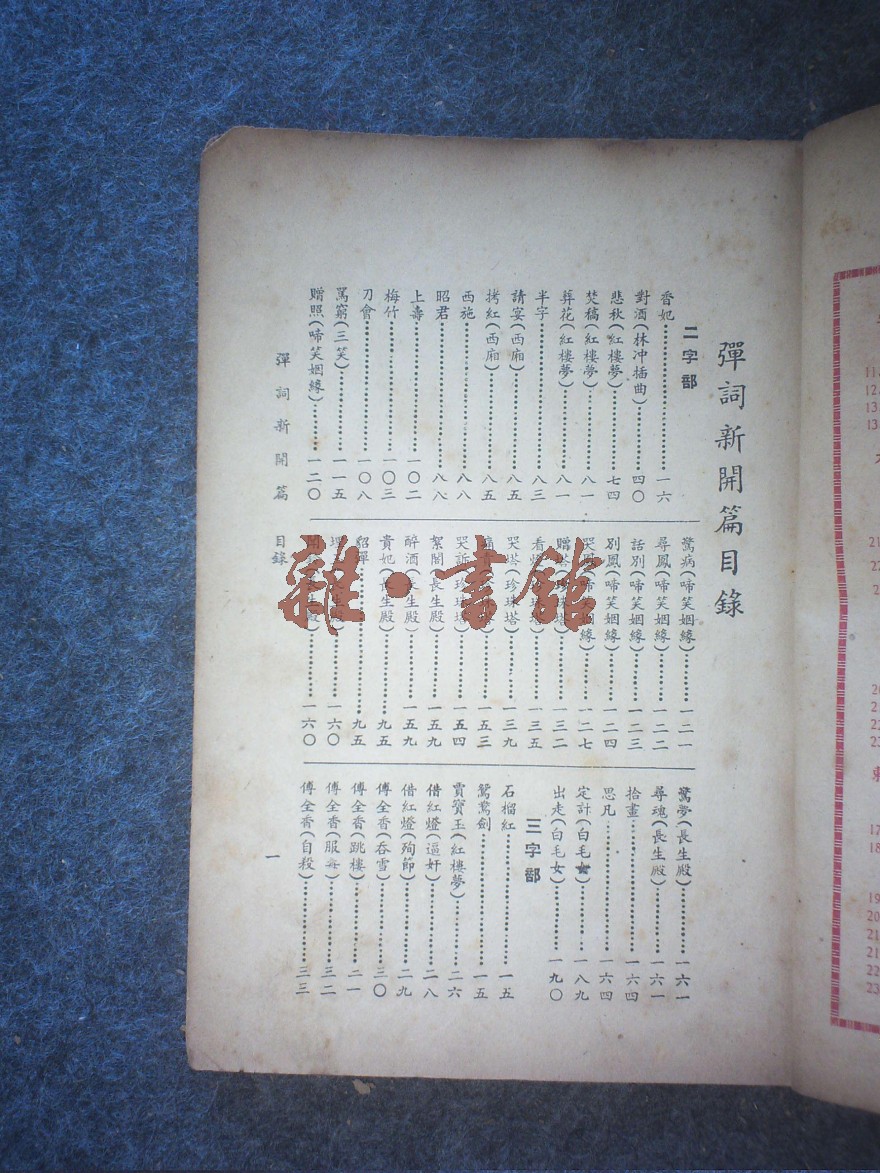 彈詞新開篇目錄
二字部
香妃⋯⋯一六
對酒(林冲插曲)⋯⋯四〇
悲秋(紅樓夢)⋯⋯七四
焚稿(紅樓夢)⋯⋯八一
葬花(紅樓夢)⋯⋯八一
半字⋯⋯八三
請宴(西廂)⋯⋯八五
拷紅(西廂)⋯⋯八五
西施⋯⋯八八
昭君⋯⋯八八
上壽⋯⋯一〇二
梅竹⋯⋯一〇三
刀會⋯⋯一〇八
罵窮(三笑)⋯⋯一一五
贈照(啼笑姻緣)⋯⋯一二〇
驚病(啼笑姻緣)⋯⋯一二一
尋鳳(啼笑姻緣)⋯⋯一二二
話別(啼笑姻緣)⋯⋯一二三
別鳳(啼笑姻緣)⋯⋯一二四
哭鳳(啼笑姻緣)⋯⋯一二七
贈塔(珍珠塔)⋯⋯一三二
看燈(珍珠塔)⋯⋯一三五
哭塔(珍珠塔)⋯⋯一三九
⋯⋯一五三
哭訴(珍珠塔)⋯⋯一五四
絮閣(長生殿)⋯⋯一五九
醉酒(長生殿)⋯⋯一五九
貴妃(長生殿)⋯⋯九五
貂蟬⋯⋯九五
(長生殿)⋯⋯一六〇
(長生殿)⋯⋯一六〇
驚夢(長生殿)⋯⋯一六一
尋魂(長生殿)⋯⋯一六一
拾畫⋯⋯一六四
思凡⋯⋯一六四
定計(白毛女)⋯⋯一八九
出走(白毛女)⋯⋯一九〇
三字部
石榴紅⋯⋯一五
鴛鴦劍⋯⋯一五
賈寶玉(紅樓夢)⋯⋯二六
借紅燈(逼奸)⋯⋯二八
借紅燈(殉節)⋯⋯二九
傅全香(吞雪)⋯⋯三〇
傅全香(跳樓)⋯⋯三一
傅全香(服毒)⋯⋯三二
傅全香(自殺)⋯⋯三三
彈詞新開篇 目錄
一
雜·書館